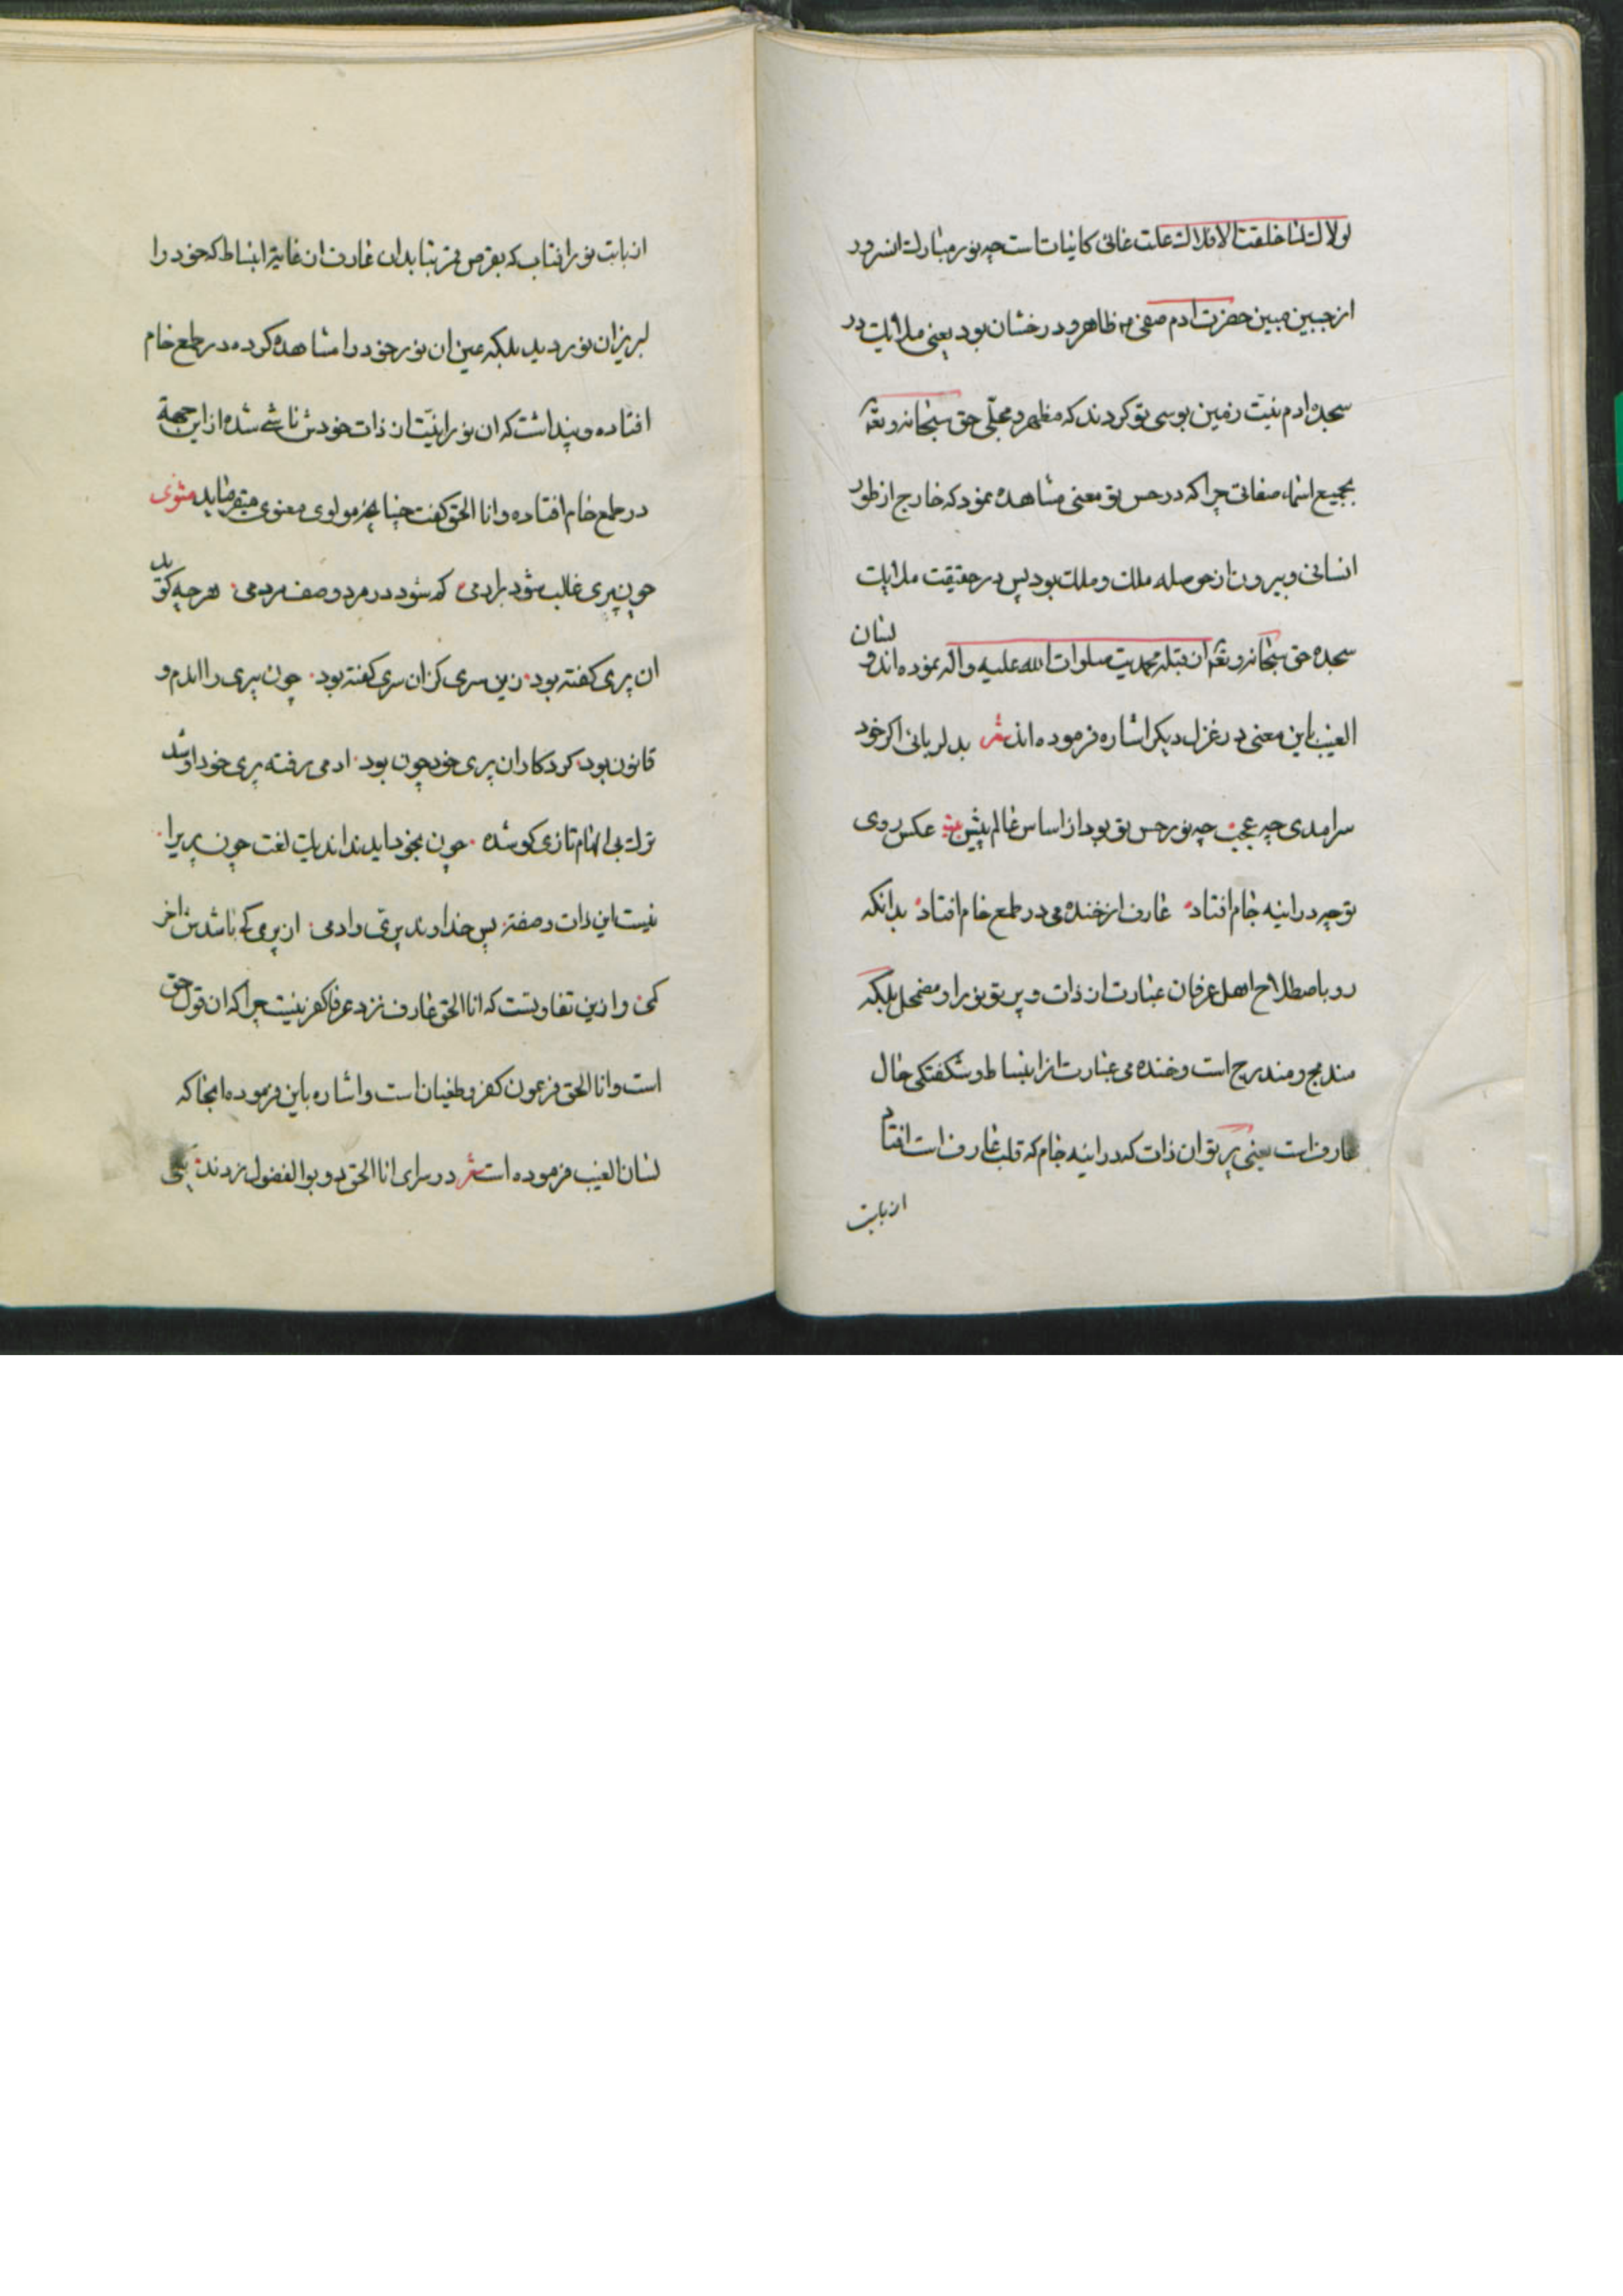 لولاك لما خلقت الافلاك علت غائی کاینات است چه نور مبارك انسرور
از جبین مبین حضرت ادم صفی ظاهر و درخشان بود یعنی ملایك در
سجده ادم نیت زمین بوسی تو کردند که مظهر و مجلّی حق سبحانه و تعه
بجمیع اسماء صفاتی چرا که در حسن تو معنی مشاهده نمود که خارج از طور
انسانی و بیرون از حوصله ملك و ملك بود پس در حقیقت ملایك
سجده حق سبحانه و تعه ان قبله محمدیت صلوات الله علیه و اله نموده اند و لسان
الغیب باین معنی در غزل دیکر اشاره فرموده اند شعر بدلربائی اکر خود
سرامدی چه عجب چه نور حسن تو بود از اساس عالم پیش بیت عکس روی
تو چه در اینه جام افتاد عارف از خنده می در طمع خام افتاد بدانکه
رو باصطلاح اهل عرفان عبارت از ذات و پرتو نور او مضمحل بلکه
مندمج و مندرج است و خنده می عبارت از انبساط و شکفتکی حال
عارف است یعنی پرتو ان ذات که در اینه جام که قلب عارف است افتاد
از بابت
از بابت نور افتاب که بقرص قمر بتابد ان عارف از غایة انبساط که خود را
لبریز ان نور دید بلکه عین ان نور خود را مشاهده کرده در طمع خام
افتاده و پنداشت که ان نورانیّت از ذات خودش ناشی شده از این جهة
در طمع خام افتاده و انا الحق کفت چنانچه مولوی معنوی میفرماید مثنوی
چون پری غالب شود بر ادمی کم شود در مرد وصف مردمی هر چه کوید
ان پری کفته بود زین سری کز ان سری کفته بود چون پری را این دم و
قانون بود کردکار ان پری خود چون بود ادمی رفته پری خود او شد
ترك بی الهام تازی کو شده چون بخود اید نداند یك لغت چون پریرا
نیست این ذات و صفة پس خداوند پری و ادمی از پری کی باشدش اخر
کمی و ازین تفاوتست که انا الحق عارف نزد عرفا کفر نیست چرا که ان قول حق
است و انا الحق فرعون کفر و طغیان است و اشاره باین فرموده انجا که
لسان الغیب فرموده است شعر در سرای انا الحق دو بو الفضول زدند یکی